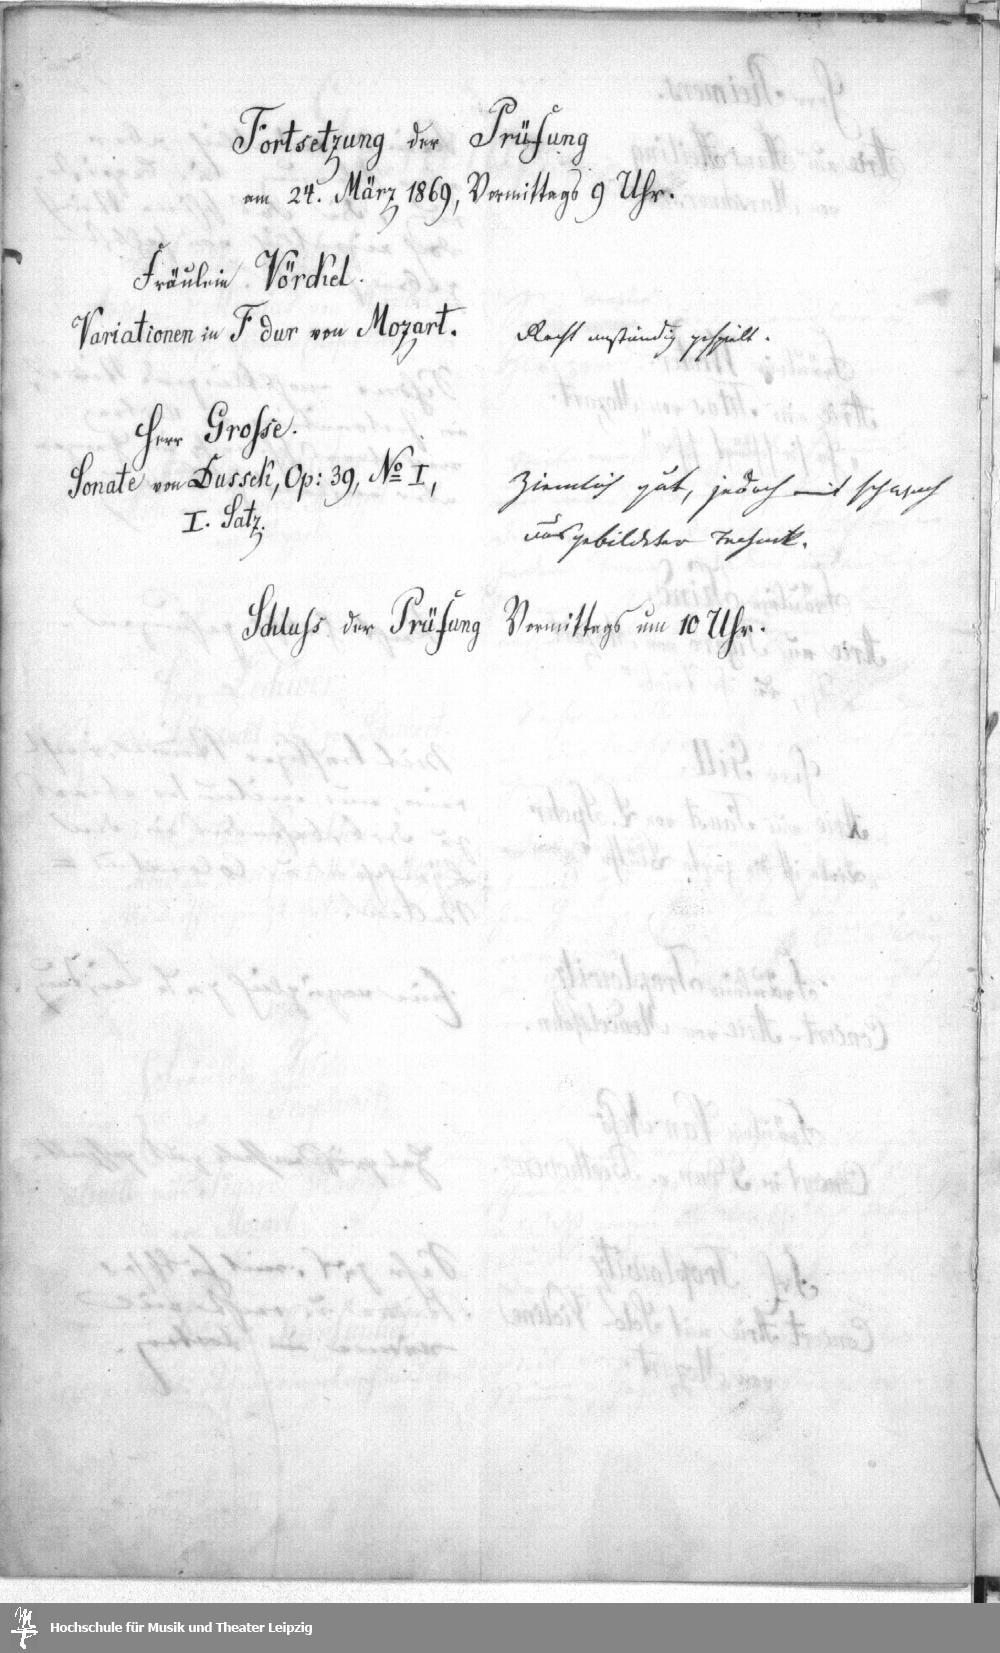 Fortsetzung der Prüfung
am 24. März 1869, Vormittags 9 Uhr.
Fräulein Vörckel.
Variationen in F dur von Mozart.
Recht anständig gespielt.
Herr Grosse.
Sonate von Dussek, Op: 39, No I,
I. Satz.
Ziemlich gut, jedoch mit schwach
ausgebildeter Technik.
Schluss der Prüfung Vormittags um 10 Uhr.
Hochschule für Musik und Theater Leipzig